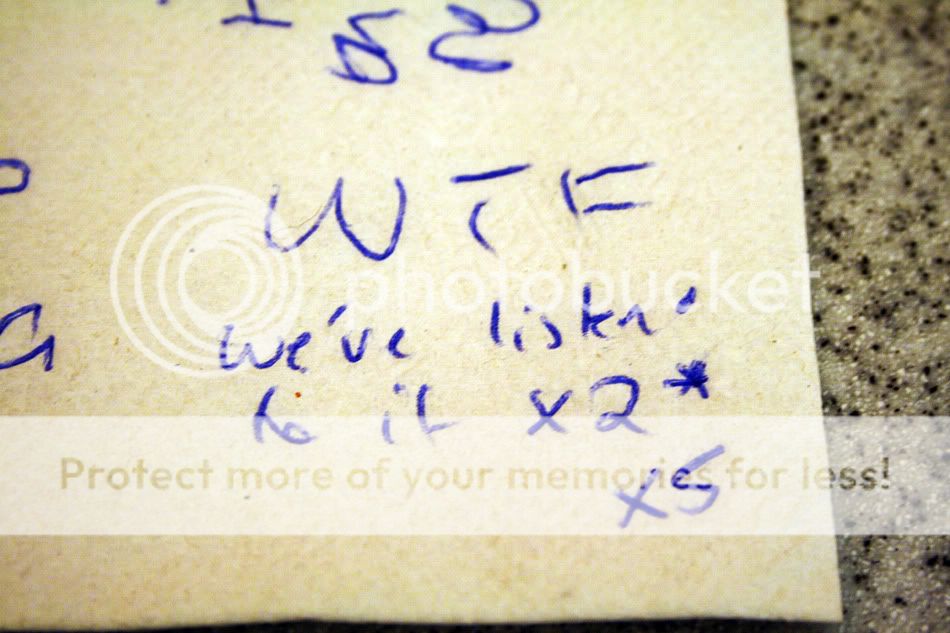 WTF
photobucket
we've listen'
to it x2*
Protect more of your memories for less!
x5